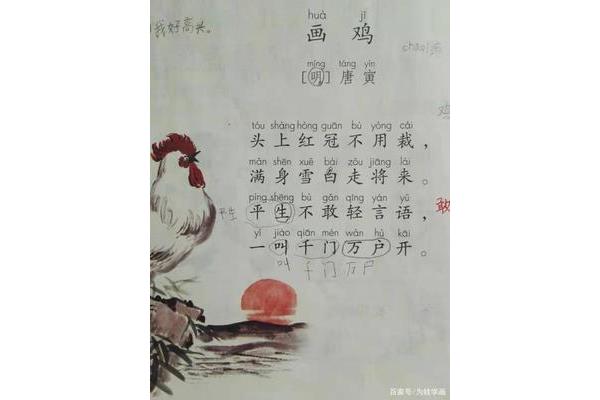 我好高头。
huà jī
画 鸡
míng táng yín
[明] 唐 寅
tóu shàng hóng guān bù yòng cái
头 上 红 冠 不 用 裁，
mǎn shēn xuě bái zǒu jiāng lái
满 身 雪 白 走 将 来。
píng shēng bù gǎn qīng yán yǔ
平生 平 生 不 敢 轻 言 语， 敢
yí jiào qiān mén wàn hù kāi
一 叫 千 门 万 户 开。
叫 千 门 万 户
百家号/为娃学画